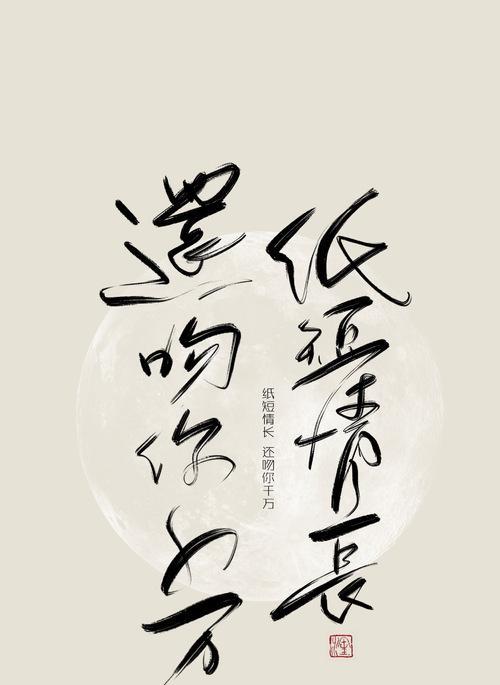 纸短情長
還吻你千万
纸短情长 还吻你千万